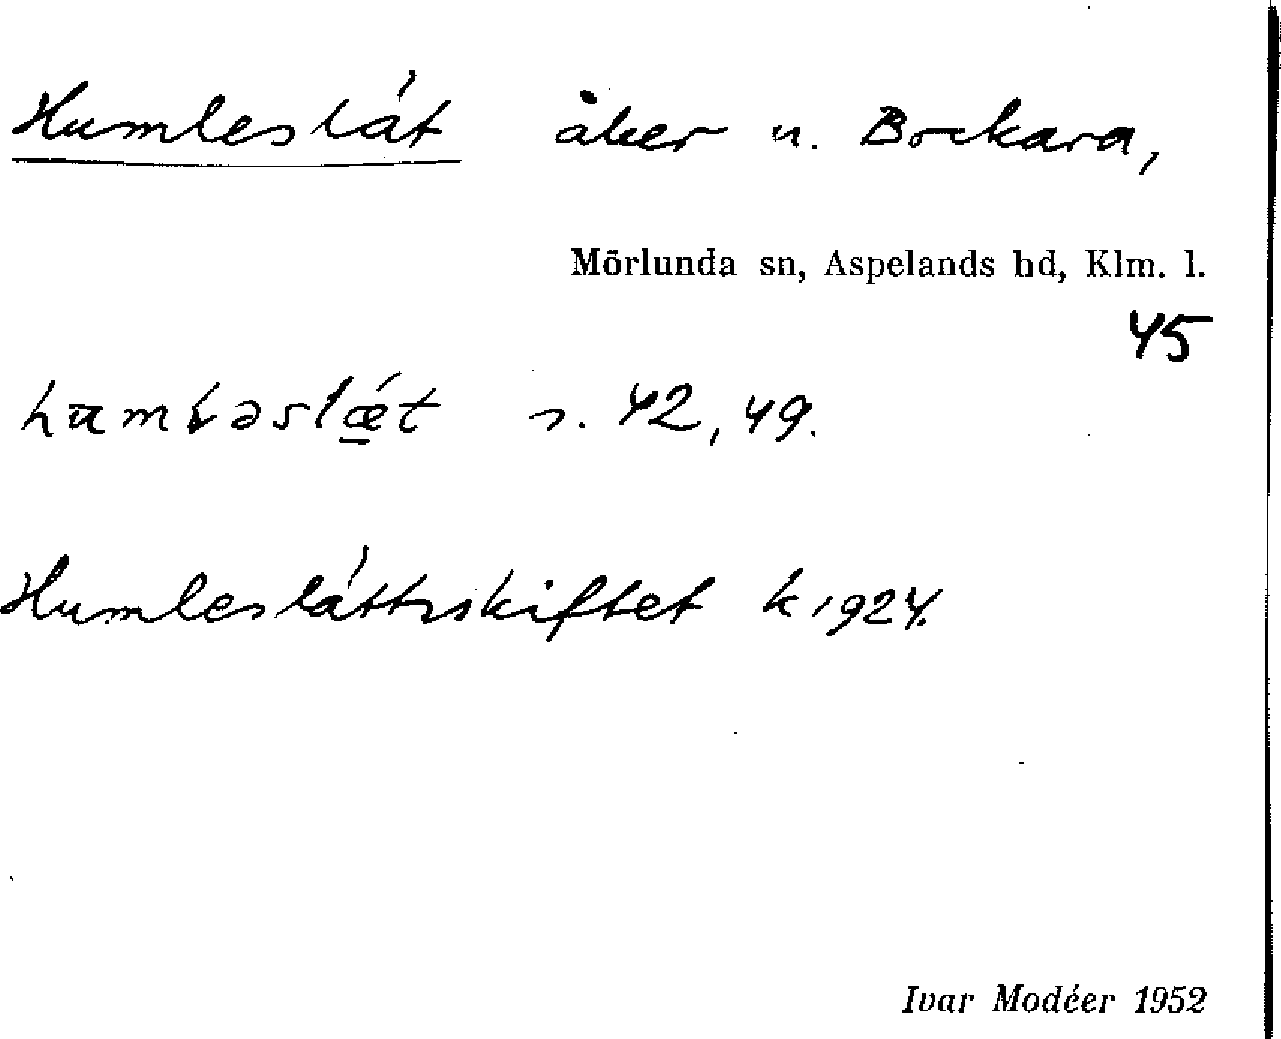 Humleslát åker u. Bockara,
Mörlunda sn, Aspelands hd, Klm. l.
45
s. 42, 49.
Humleslåttsskiftet k 1924.
Ivar Modéer 1952